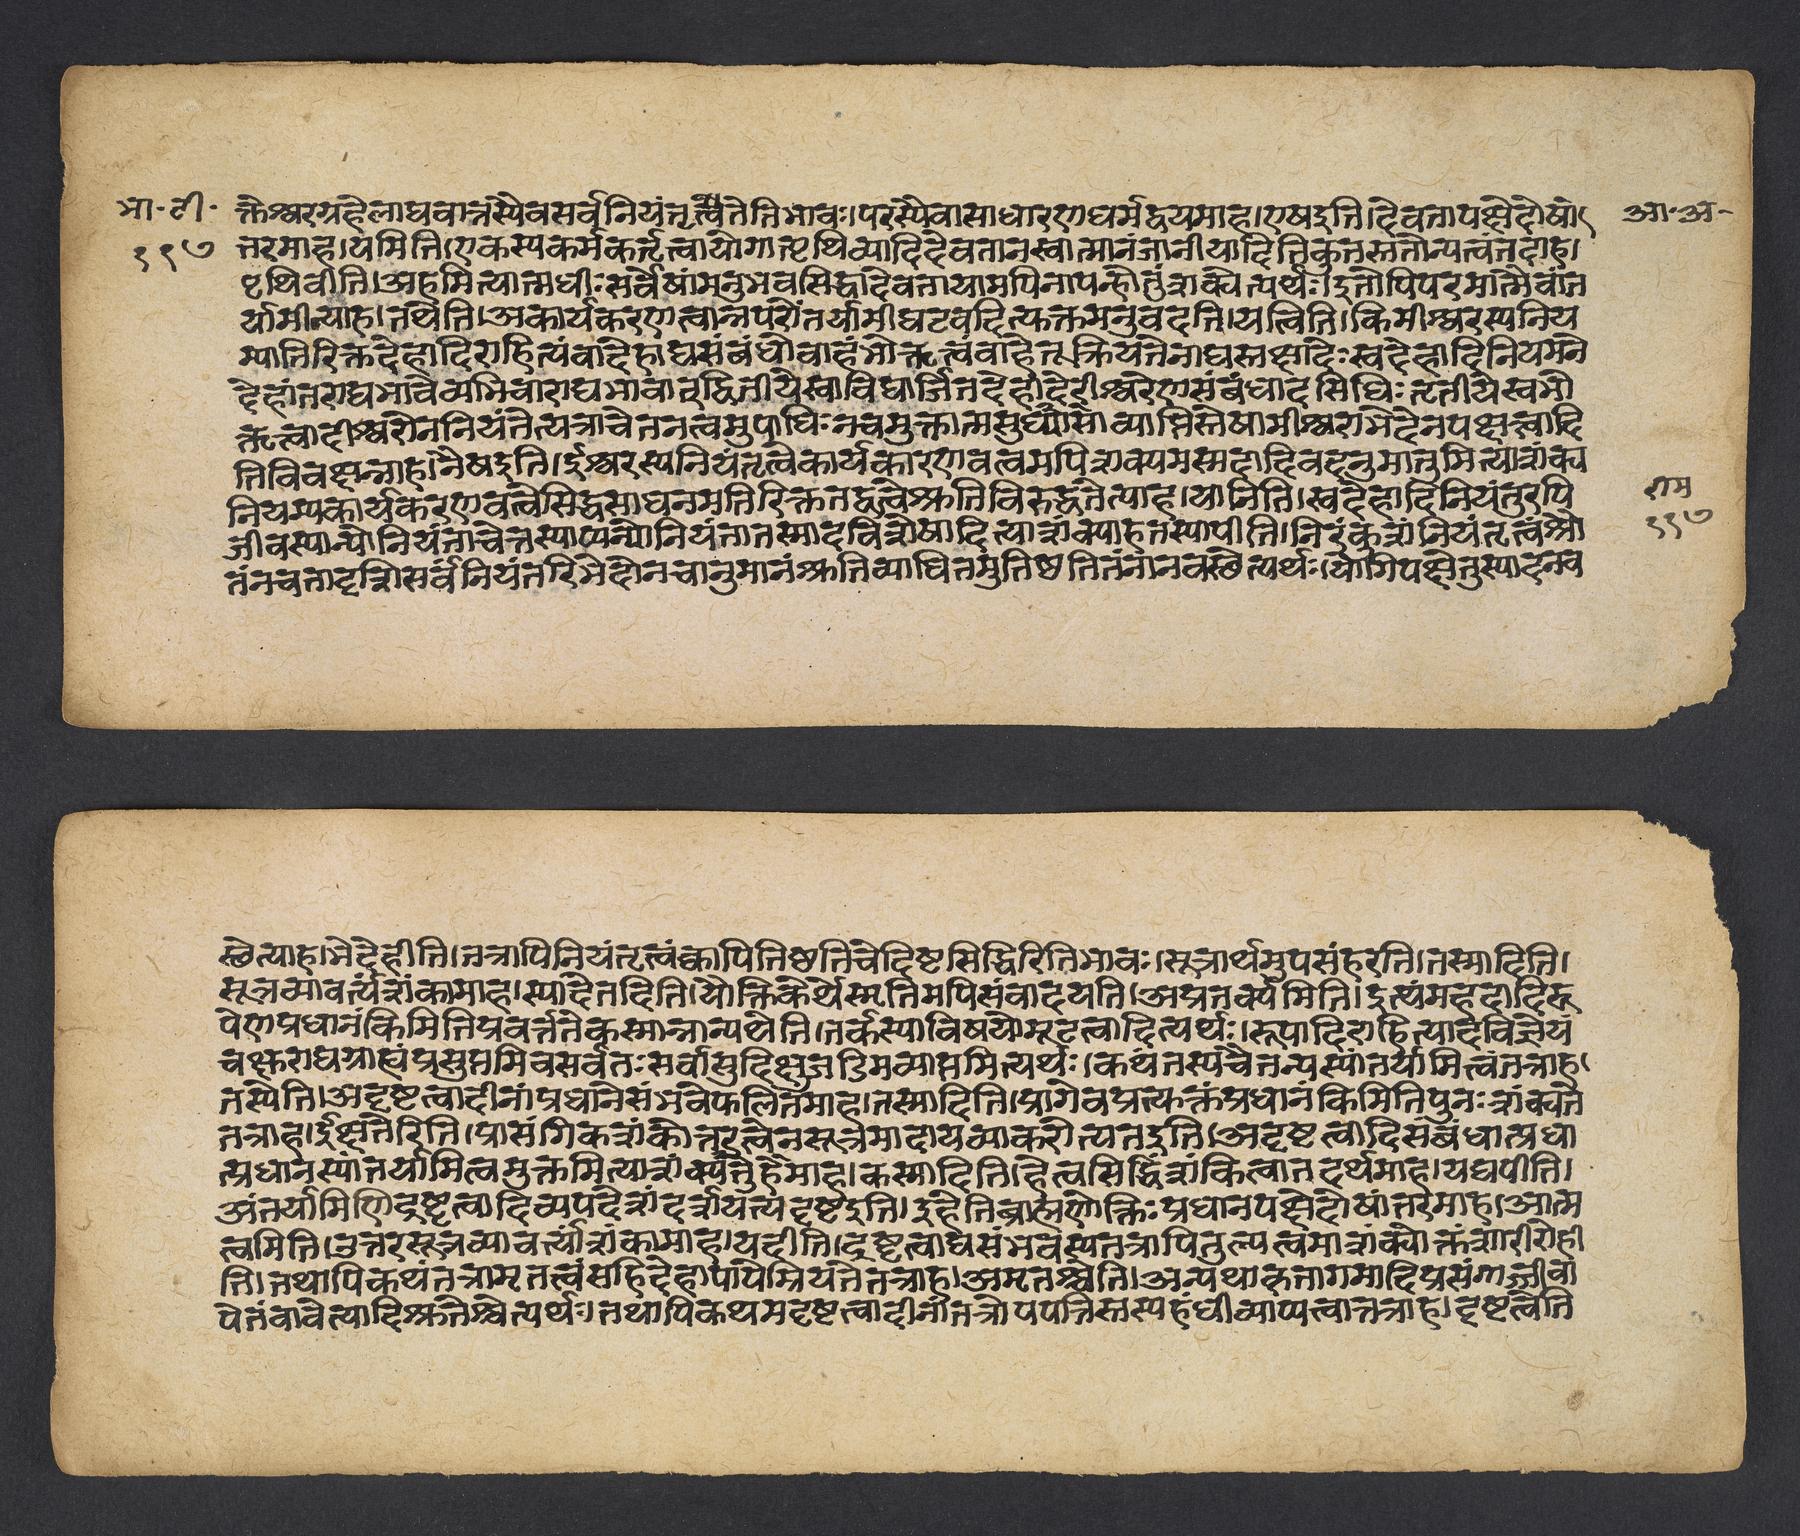 भा॰टी॰
११७
आ॰अ॰
राम
११७
त्कैश्वरग्रहेलाघवान्नंस्यैवसर्वनियंतृत्वेतेतिभावः।परस्यैवासाधारणधर्मद्वयमाह।एषइति।देवतापक्षेदोषां
तरमाह।यमिति।एकस्यकर्मकर्तृत्वायोगात्पृथिव्यादिदेवतानस्वात्मानंजानीयादितिकुतस्ततोन्यत्वंतदाह।
पृथिवीति।अहमित्यात्मधीःसर्वेषांमनुभवसिद्धादेवतायामपिनापन्होतुंशक्येत्यर्थः।इतोपिपरमात्मैवांत
र्यामीत्याह।तथेति।अकार्यकरणत्वान्नपरोंतर्यामीघटवदित्यक्तमनुवदति।यत्विति।किमीश्वरस्यनिय
म्यातिरिक्तदेहादिराहित्यंवादेहाद्यसंबंधोवाहंभोक्तृत्वंवाहेतूक्रियतेनाद्यस्तक्षादेःस्वदेहादिनियमने
देहांतराद्यभावेव्यभिचाराद्यभावान्नद्वितीयेस्वाविद्यार्जितदेहादेरीश्वरेणसंबंधादसिद्धिःतृतीयेस्वभो
क्तृत्वादीश्वरोननियंतेत्यत्राचेतनत्वमुपाधिःनचमुक्तात्मसुव्याप्तिस्तेषामीश्वराभेदेनपक्षत्वादि
तिविवक्षन्नाह।नैषइति।ईश्वरस्यनियंतृत्वेकार्यकारणवत्वमपिशक्यमस्मदादिवदनुमातुमित्याशंक्य
नियम्यकार्यकरणवत्वेसिद्धसाधनमतिरिक्ततद्वत्वेश्रुतिविरुद्धंतेत्याह।यानिति।स्वदेहादिनियंतुरपि
जीवस्यान्योनियंताचेत्तस्याप्यन्योनियंतातस्मादविशेषादित्याशंक्याहतस्यापीति।निरंकुशंनियंतृत्वंश्रौ
तंनचतादृशिसर्वनियंतरिभेदोनचानुमानंश्रुतिव्याधितमुत्तिष्ठतितंनानवस्थेत्यर्थः।योगिपक्षेतुस्यादनव
स्थेत्याह।भेदेहीति।तत्रापिनियंतृत्वंक्वापितिष्ठतिचेदिष्टसिद्धिरितिभावः।सूत्रार्थमुपसंहरति।तस्मादिति।
सूत्रव्यावर्त्यशंकामाह।स्यादेतदिति।यौक्तिकेर्थेस्मृतिमपिसंवादयति।अप्रतर्क्यमिति।इत्थंमहदादिरू
पेणप्रधानंकिमितिप्रवर्त्ततेकस्मान्नान्यथेति।तर्कस्याविषयोमूढत्वादित्यर्थः।रूपादिराहित्यादविज्ञेयं
चक्षुराद्यग्राह्यंप्रसुप्तमिवसर्वतःसर्वासुदिक्षुजडिमव्याप्तमित्यर्थः।कथंतस्यचैतन्यस्यांतर्यामित्वंतत्राह।
तस्येति।अदृष्टत्वादीनांप्रधानेसंभवेफलितमाह।तस्मादिति।प्रागेवप्रत्यक्तंप्रधानंकिमितिपुनःशंक्यते
तत्राह।ईक्षतेरिति।प्रासंगिकशंकोत्तरत्वेनसूत्रमादायव्याकरोत्यतइति।अदृष्टत्वादिसंबंधात्प्रधा
त्प्रधानस्यांतर्यामित्वमुक्तमित्याशंक्यंतुहेमाह।कस्मादिति।हेत्वसिद्धिंशंकित्वातदर्थमाह।यद्यपीति।
अंतर्यामिणिद्रष्टृत्वादिव्यपदेशंदर्शयंत्यंदृष्टइति।इहेतिब्राह्मणोक्तिःप्रधानपक्षेदोषांतरमाह।आत्म
त्वमिति।उत्तरसूत्रव्यावर्त्यांशंकामाह।यदीति।द्रष्टृत्वाद्यसंभवस्यतत्रापितुल्यत्वमाशंक्योक्तंशारीरोही
ति।तथापिकथंतत्रामृतत्वंसहिदेहापायेम्रियतेतत्राह।अमृतश्चेति।अन्यथाकृतागमादिप्रसंगाज्जीवा
पेतंवावेत्यादिश्रुतेश्चेत्यर्थः।तथापिकथमदृष्टत्वादीनांतत्रोपपत्तिस्तस्याहंधीव्याप्यत्वात्तत्राह।दृष्टत्वेति